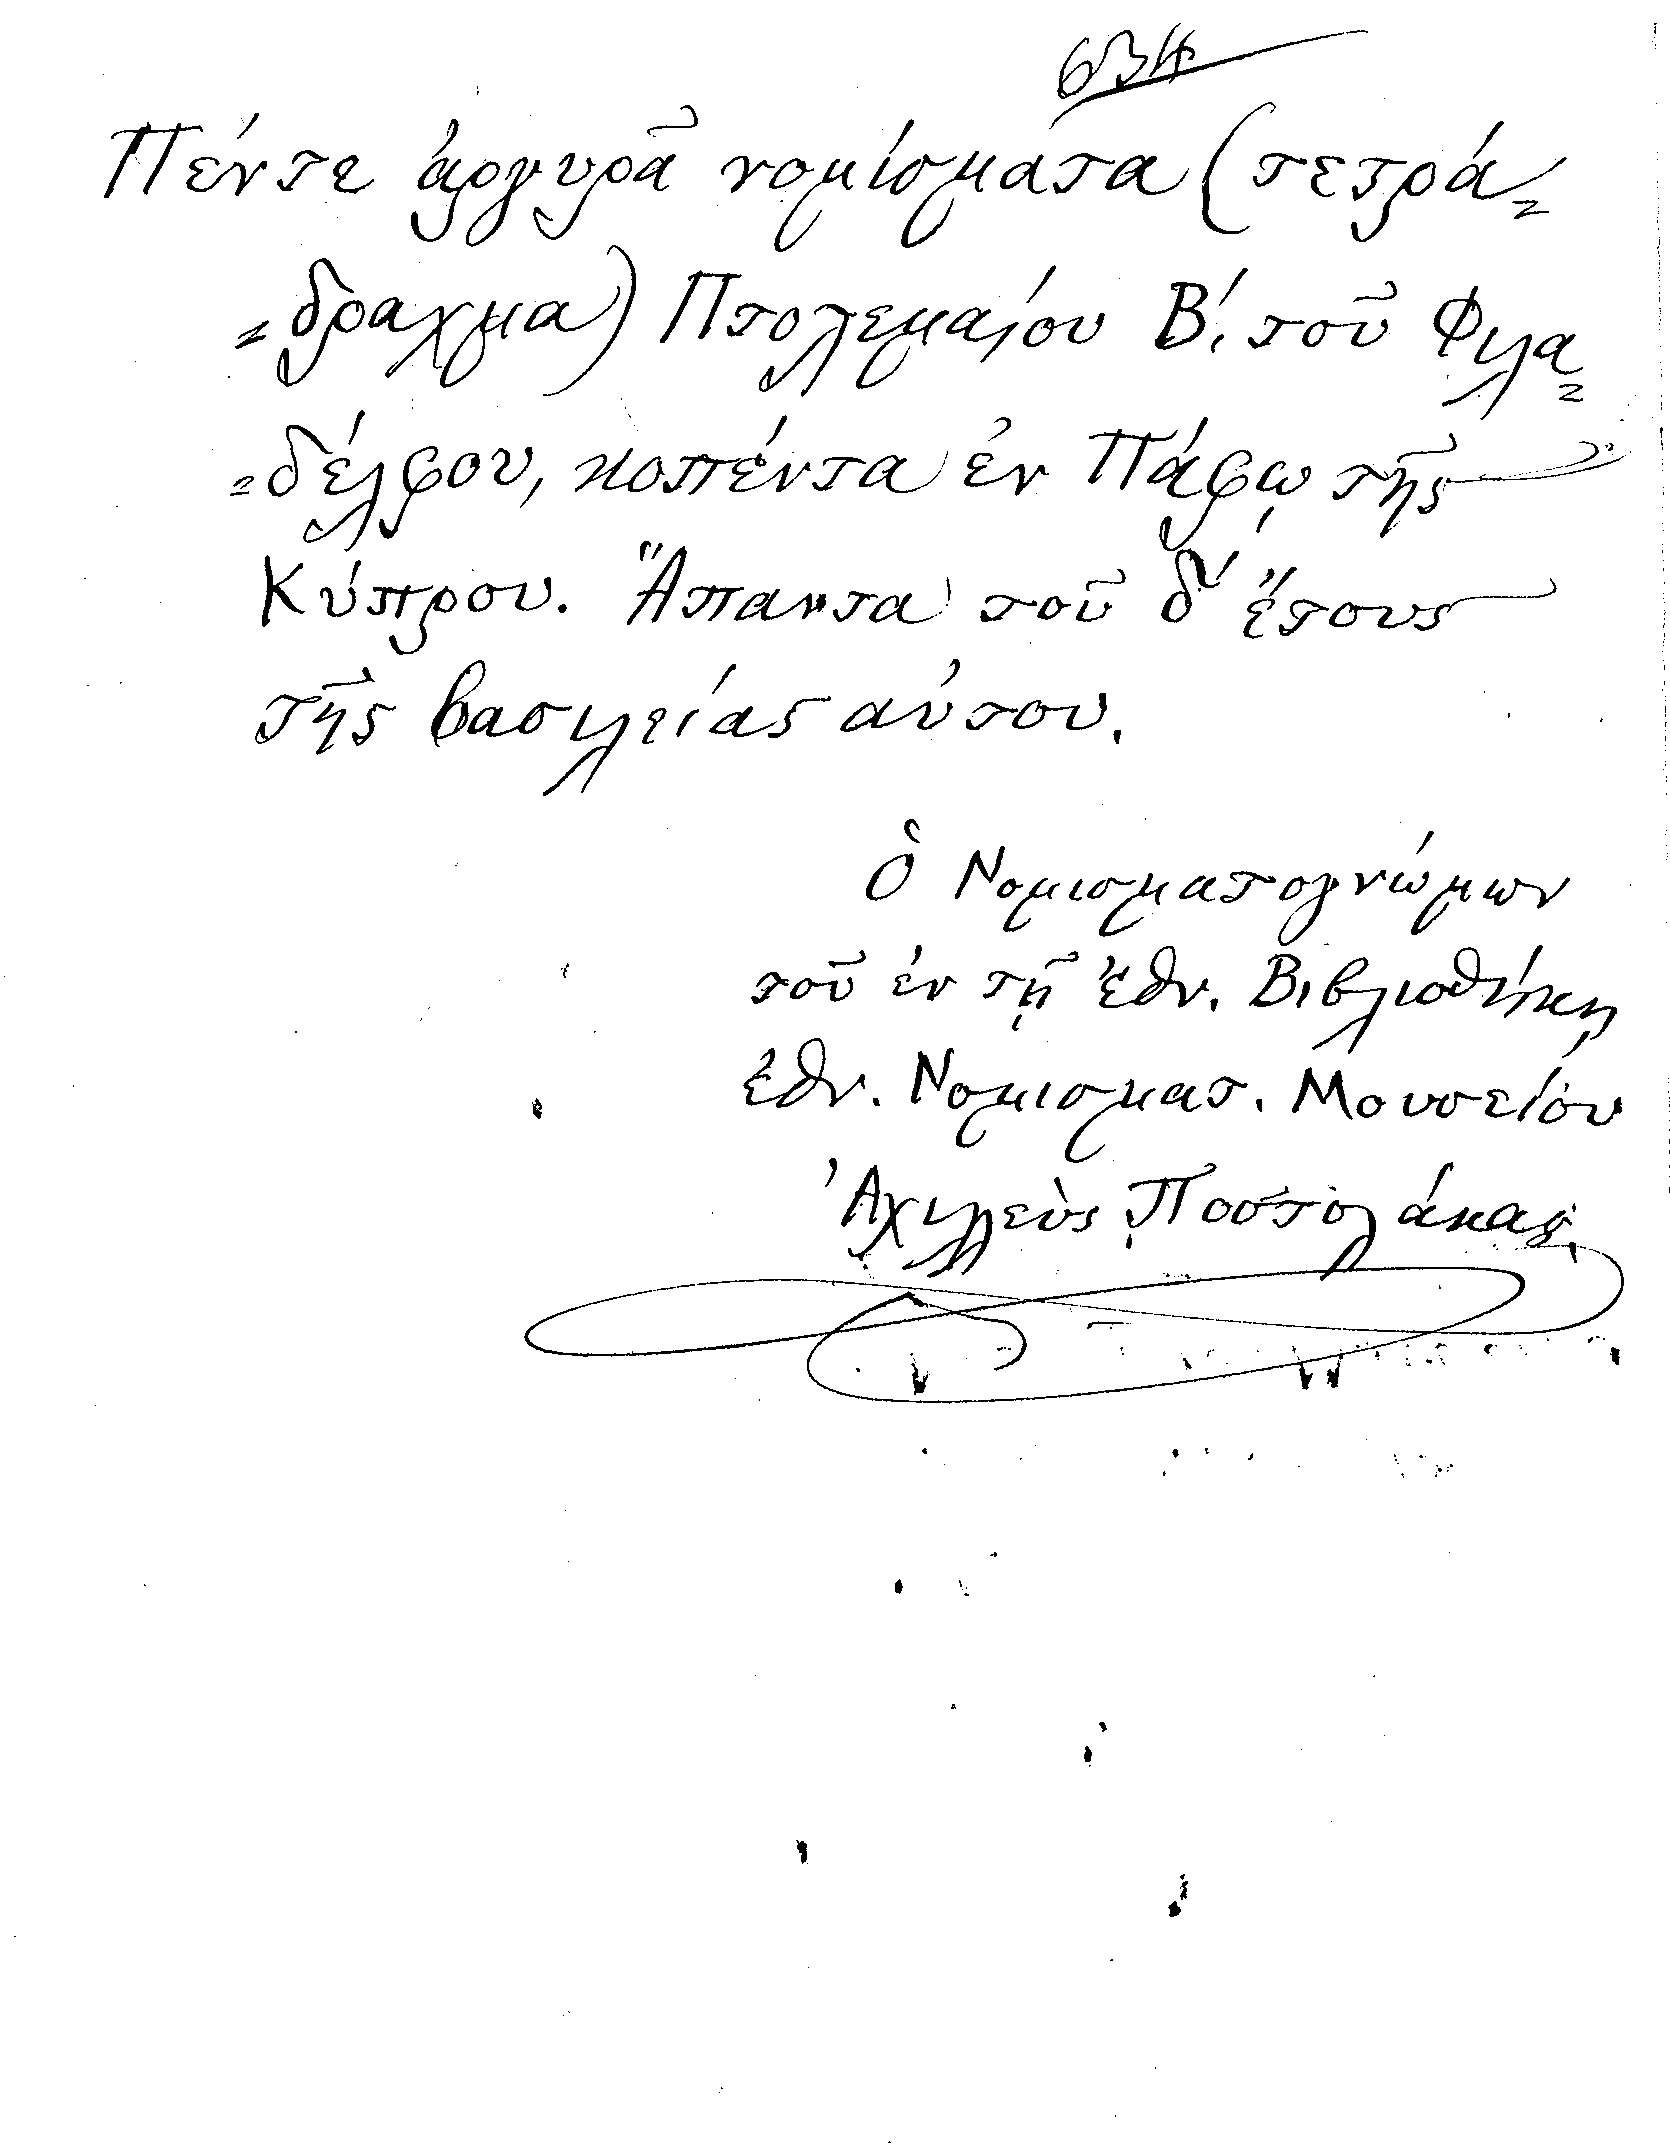 634
Πέντε ἀργυρᾶ νομίσματα (τετρά=
=δραχμα) Πτολεμαίου Β΄. τοῦ Φιλα=
=δέλφου, κοπέντα ἐν Πάφῳ τῆς
Κύπρου. Ἅπαντα τοῦ δ΄ ἔτους
τῆς βασιλείας αὐτου.
Ὁ Νομισματογνώμων
τοῦ ἐν τῇ Ἐθν. Βιβλιοθήκῃ
Ἐθν. Νομισματ. Μουσείου
Ἀχιλλεὺς Ποστολάκας.